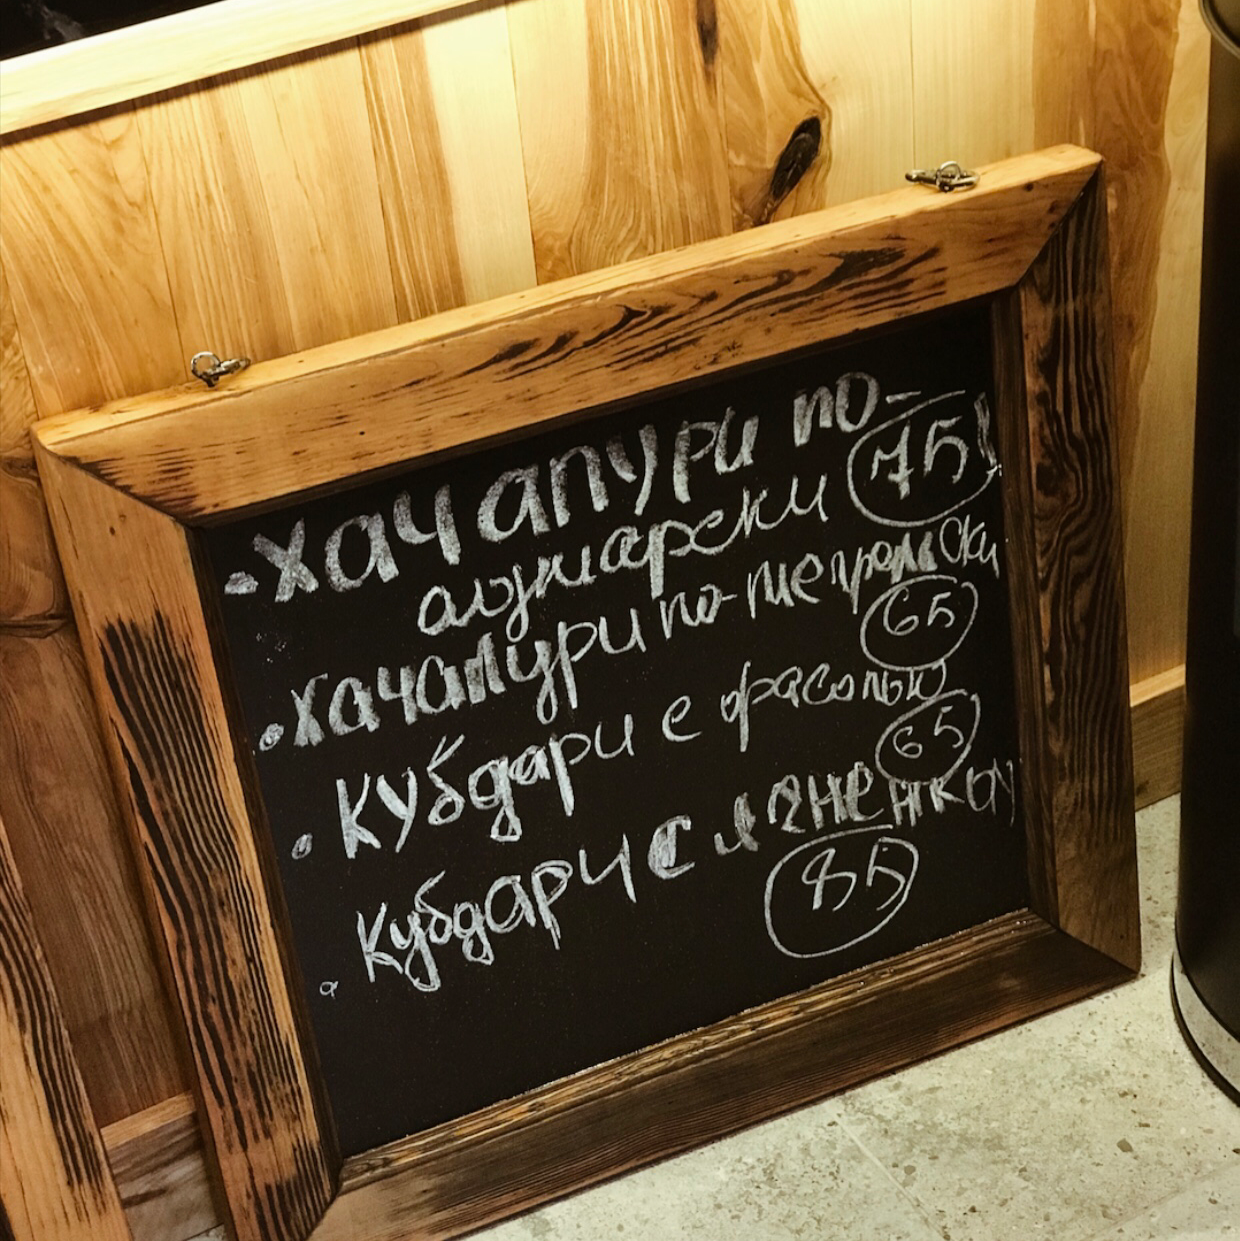 • Хачапури по-
аджарски 75!
• Хачапури по-мегрельски
65
• Кубдари с фасолью
65
• Кубдари с ягненком
85